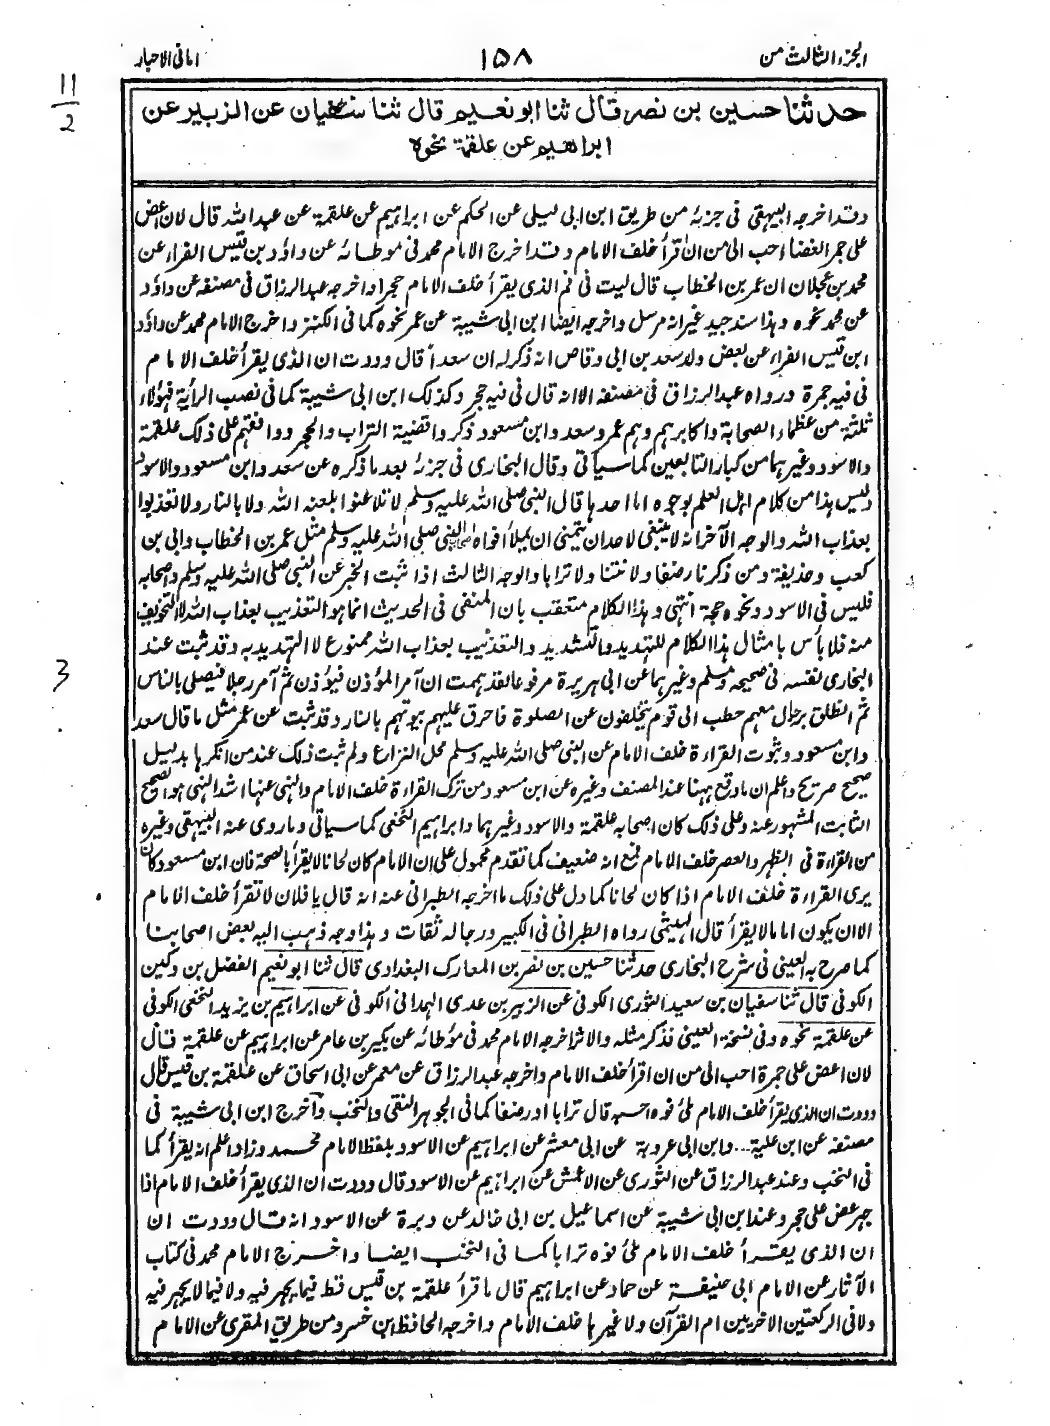 الجزء الثالث من
١٥٨
امانى الاحبار
11
2
حدثنا حسين بن نصر قال ثنا ابو نعيم قال ثنا سفيان عن الزبير عن
ابراهيم عن علقمة نحوه
وقد اخرجه البيهقى فى جزئه من طريق ابن ابى ليلى عن الحكم عن ابراهيم عن علقمة عن عبد الله قال لان اعض
على جمر الغضا احب الى من ان اقرأ خلف الامام وقد اخرج الامام محمد فى موطائه عن داؤد بن قيس الفراء عن
محمد بن عجلان ان عمر بن الخطاب قال ليت فى فم الذى يقرأ خلف الامام حجرا واخرجه عبد الرزاق فى مصنفه عن داؤد
عن محمد نحوه وهذا سند جيد غير انه مرسل واخرجه ايضا ابن ابى شيبة عن عمر نحوه كما فى الكنز واخرج الامام محمد عن داؤد
ابن قيس الفراء عن بعض ولد سعد بن ابى وقاص انه ذكر له ان سعدا قال وددت ان الذى يقرأ خلف الامام
فى فيه جمرة ورواه عبد الرزاق فى مصنفه الا انه قال فى فيه حجر وكذلك ابن ابى شيبة كما فى نصب الراية فهؤلاء
ثلثة من عظماء الصحابة واكابرهم وهم عمر وسعد وابن مسعود ذكروا قضية التراب والحجر ووافقهم على ذلك علقمة
والاسود وغيرهما من كبار التابعين كما سيأتى وقال البخارى فى جزئه بعد ما ذكره عن سعد وابن مسعود والاسود
وليس هذا من كلام اهل العلم بوجوه اما احدها قال النبى صلى الله عليه وسلم لا تلاعنوا بلعنة الله ولا بالنار ولا تعذبوا
بعذاب الله والوجه الآخر انه لا ينبغى لاحد ان يتمنى ان يملأ افواه اصحاب النبى صلى الله عليه وسلم مثل عمر بن الخطاب وابى بن
كعب وحذيفة ومن ذكرنا رضفا ولا نتنا ولا ترابا والوجه الثالث اذا ثبت الخبر عن النبى صلى الله عليه وسلم واصحابه
فليس فى الاسود ونحوه حجة انتهى وهذا الكلام متعقب بان المنفى فى الحديث انما هو التعذيب بعذاب الله لا التخويف
منه فلا بأس بامثال هذا الكلام للتهديد والتشديد والتعذيب بعذاب الله ممنوع لا التهديد به وقد ثبت عند
البخارى نفسه فى صحيحه ومسلم وغيرهما عن ابى هريرة مرفوعا لقد هممت ان آمر المؤذن فيؤذن ثم آمر رجلا فيصلى بالناس
ثم انطلق برجال معهم حطب الى قوم يتخلفون عن الصلوة فاحرق عليهم بيوتهم بالنار وقد ثبت عن عمر مثل ما قال سعد
3
وابن مسعود وثبوت القراءة خلف الامام عن النبى صلى الله عليه وسلم محل النزاع ولم ثبت ذلك عند من انكرها بدليل
صحيح صريح واعلم ان ما وقع ههنا عند المصنف وغيره عن ابن مسعود من ترك القراءة خلف الامام والنهى عنها اشد النهى هو الصحيح
الثابت المشهور عنه وعلى ذلك كان اصحابه علقمة والاسود وغيرهما وابراهيم النخعى كما سيأتى وما روى عنه البيهقى وغيره
من القراءة فى الظهر والعصر خلف الامام فمع انه ضعيف كما تقدم محمول على ان الامام كان لحانا لا يقرأ بالصحة فان ابن مسعود كان
يرى القراءة خلف الامام اذا كان لحانا كما دل على ذلك ما اخرجه الطبرانى عنه انه قال يا فلان لا تقرأ خلف الامام
الا ان يكون اماما لا يقرأ قال الهيثمى رواه الطبرانى فى الكبير ورجاله ثقات وهذا وجه ذهب اليه بعض اصحابنا
كما صرح به العينى فى شرح البخارى حدثنا حسين بن نصر بن المعارك البغدادى قال ثنا ابو نعيم الفضل بن دكين
الكوفى قال ثنا سفيان بن سعيد الثورى الكوفى عن الزبير بن عدى الهمدانى الكوفى عن ابراهيم بن يزيد النخعى الكوفى
عن علقمة نحوه وفى نسخة العينى فذكر مثله والاثر اخرجه الامام محمد فى مؤطائه عن بكير بن عامر عن ابراهيم عن علقمة قال
لان اعض على جمرة احب الى من ان اقرأ خلف الامام واخرجه عبد الرزاق عن معمر عن ابى اسحاق عن علقمة بن قيس قال
وددت ان الذى يقرأ خلف الامام ملئ فوه احسبه قال ترابا او رضفا كما فى الجوهر النقى والنخب وآخرج ابن ابى شيبة فى
مصنفه عن ابن علية... وابن ابى عروبة عن ابى معشر عن ابراهيم عن الاسود بلفظ الامام محمد وزاد اعلم انه يقرأ كما
فى النخب وعند عبد الرزاق عن الثورى عن الاعمش عن ابراهيم عن الاسود قال وددت ان الذى يقرأ خلف الامام اذا
جهر عض على حجر وعند ابن ابى شيبة عن اسماعيل بن ابى خالد عن وبرة عن الاسود انه قال وددت ان
ان الذى يقرأ خلف الامام ملئ فوه ترابا كما فى النخب ايضا واخرج الامام محمد فى كتاب
الآثار عن الامام ابى حنيفة عن حماد عن ابراهيم قال ما قرأ علقمة بن قيس قط فيما يجهر فيه ولا فيما لا يجهر فيه
ولا فى الركعتين الاخريين ام القرآن ولا غيرها خلف الامام واخرجه الحافظ ابن خسرو من طريق المقرى عن الامام